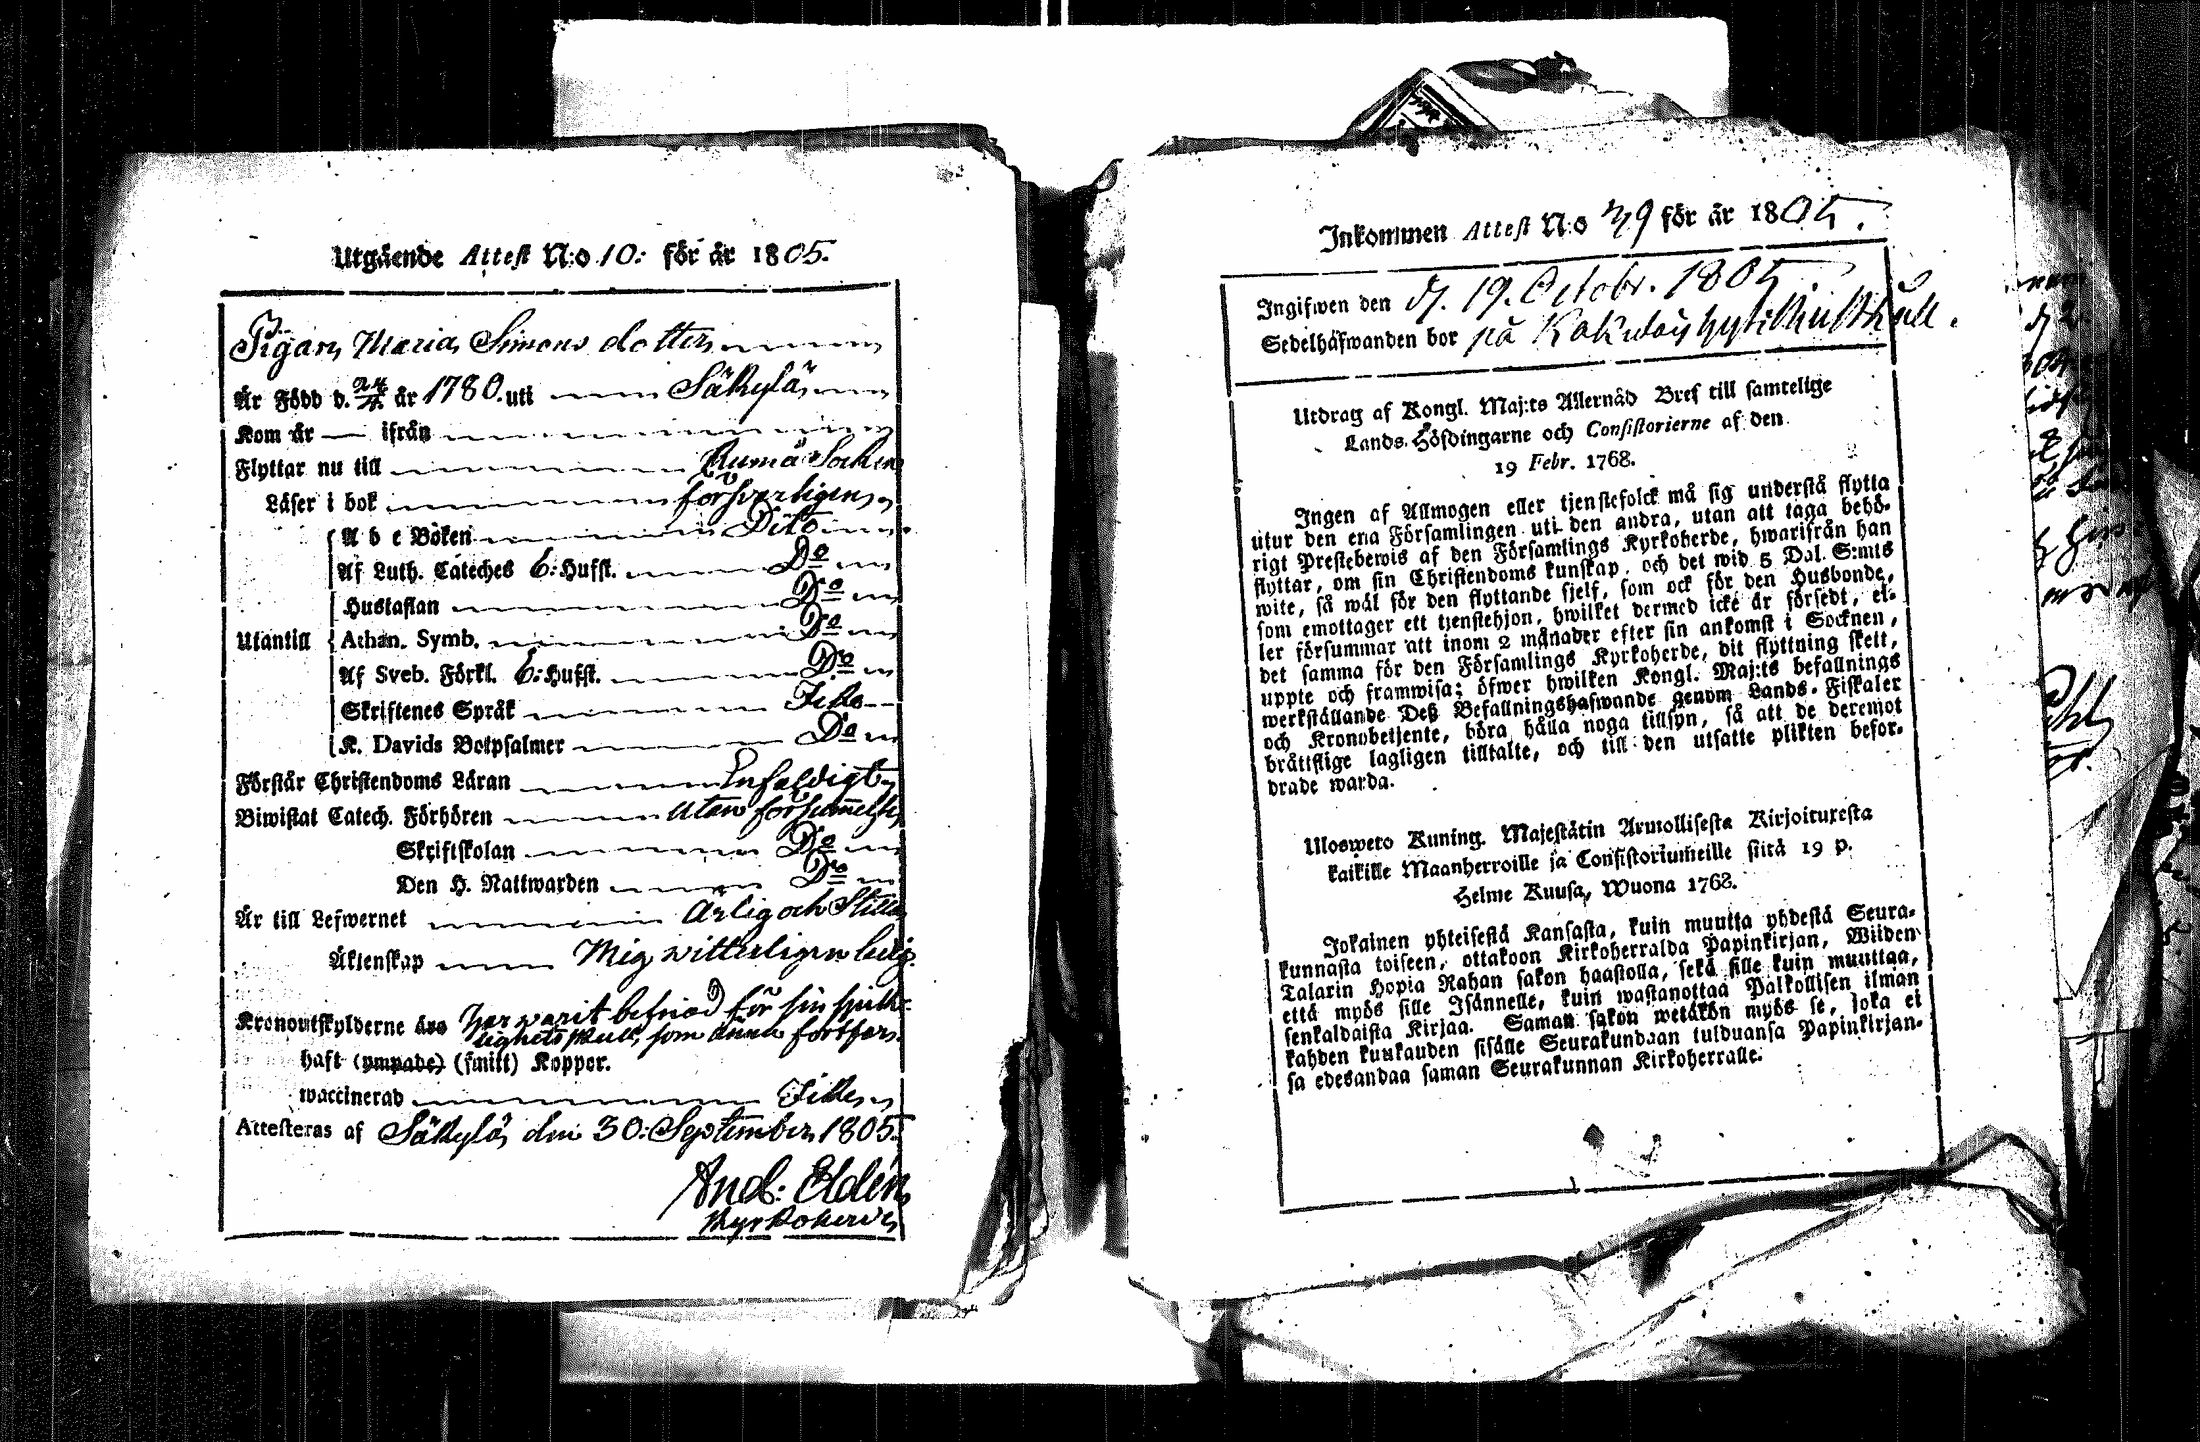 Utgående Attest N:o 10: för år 1805.
Pigan Maria Simons dotter
Är Född d. 24/11. år 1780. uti Säkylä
Kom år — ifrån
Flyttar nu till Kumå Socken
Läser i bok försvarligen
A b c Boken Dito
Af Luth. Cateches 6: Hufst. Do
Hustaflan Do
Utantill Athan. Symb. Do
Af Sveb. Förkl. 6: Hufst. Do
Skriftenes Språk Icke
K. Davids Botpsalmer Do
Förstår Christendoms Läran Enfaldigt
Biwistat Catech. Förhören utan försummelse
Skriftskolan Do
Den H. Nattwarden Do
Är till Lefwernet Ärlig och Stilla
Äktenskap Mig vitterligen ledig
Kronoutskylderne är har varit befriad för sin sjuk-
lighets skull, som ännu fortfar.
haft (ympade) (smitt) Koppor.
waccinerad Icke
Attesteras af Säkylä den 30: September 1805.
And: Eldén
Kyrkoherde
Inkommen Attest N:o 39 för år 1805.
Ingifwen den d. 19. Octobr. 1805
Sedelhäfwanden bor på
Utdrag af Kongl. Maj:ts Allernåd Bref till samtelige
Lands-Höfdingarne och Consistorierne af den
19 Febr. 1768.
Ingen af Allmogen eller tjenstefolck må sig understå flytta
utur den ena Församlingen uti den andra, utan att taga behö-
rigt Prestebewis af den Församlings Kyrkoherde, hwarifrån han
flyttar, om sin Christendoms kunskap, och det wid 5 Dal. S:mts
wite, så wäl för den flyttande sjelf, som ock för den Husbonde,
som emottager ett tjenstehjon, hwilket dermed icke är försedt, el-
ler försummar att inom 2 månader efter sin ankomst i Socknen,
det samma för den Församlings Kyrkoherde, dit flyttning skett,
uppte och framwisa; öfwer hwilken Kongl. Maj:ts befallnings
werkställande Deß Befallningshafwande genom Lands-Fiskaler
och Kronobetjente, böra hålla noga tillsyn, så att de deremot
bråttslige lagligen tilltalte, och till den utsatte plikten befor-
drade warda.
Ulosweto Kuning. Majestätin Armollisesta Kirjoituxesta
kaikille Maanherroille ja Consistoriumeille siitä 19 p.
Helme Kuusa, Wuona 1768.
Jokainen yhteisestä Kansasta, kuin muutta yhdestä Seura-
kunnasta toiseen, ottakoon Kirkoherralda Papinkirjan, Wiiden
Talarin Hopia Rahan sakon haastolla, sekä sille kuin muuttaa,
että myös sille Isännelle, kuin wastanottaa Palkollisen ilman
senkaldaista Kirjaa. Saman sakon wetäkön myös se, joka ei
kahden kuukauden sisälle Seurakundaan tulduansa Papinkirjan-
sa edesandaa saman Seurakunnan Kirkoherralle.